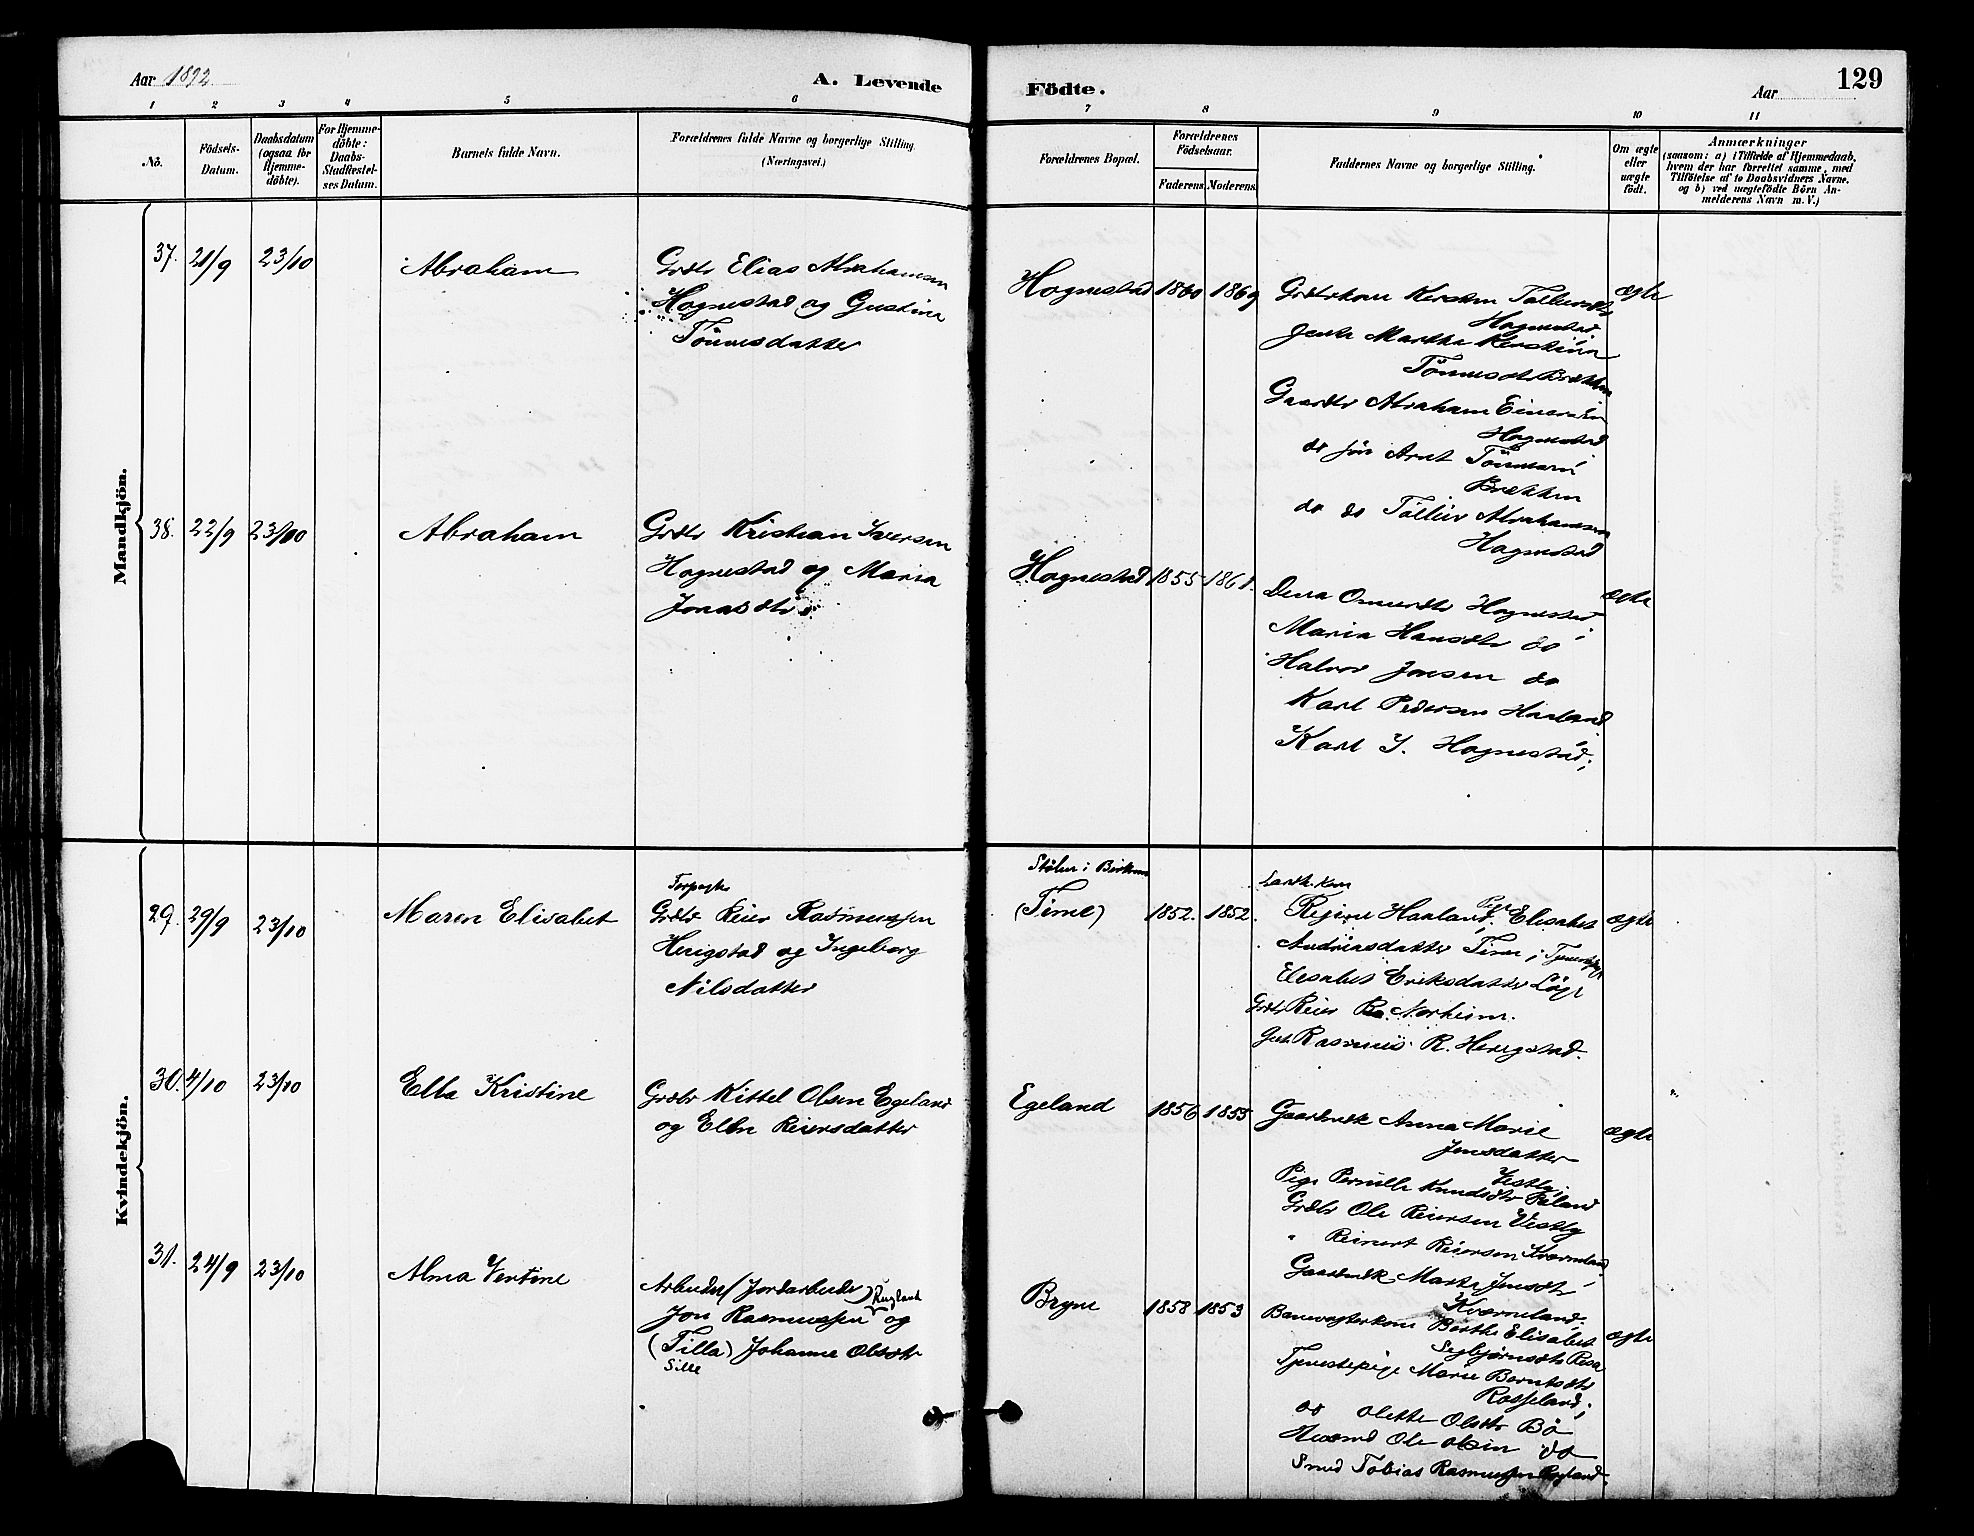 Aar 1892
A. Levende
Födte.
Aar
129
1 2 3 4 5 6 7 8 9 10 11
No.
Födsels-
Datum.
Daabsdatum
(ogsaa for
Hjemme-
døbte).
For Hjemme-
døbte:
Daabs-
Stadfestel-
ses Datum.
Barnets fulde Navn.
Forældrenes fulde Navne og borgerlige Stilling
(Næringsvei.)
Forældrenes Bopæl.
Forældrenes
Födselsaar.
Faderens. Moderens.
Faddernes Navne og borgerlige Stilling.
Om ægte
eller
uægte
født.
Anmærkninger
(saasom: a) i Tilfælde af Hjemmedaab,
hvem der har forrettet samme, med
Tilføielse af to Daabsvidners Navne.
og b) ved uægtefødte Börn An-
melderens Navn m. V.)
Mandkjön.
37. 21/9 23/10
Abraham
Grdbr Elias Abrahamsen
Hognestad og Gustina
Tönnesdatter
Hognestad 1860 1869
Grdbrkone Kirsten
Hognestad
Martha Kirstina
Tönnesdtr Brekken
Gaardbr Abraham Einersen
Hognestad
do Søn Arnt Tönnesen
Brekken
do do Tollew Abrahamsen
Hognestad
ægte
38. 22/9 23/10
Abraham
Grdbr Kristian Iversen
Hognestad og Maria
Jonasdtr
Hognestad 1855 1861.
Dena Omundtr Hognestad
Maria Hansdtr do
Halvor Jonsen do
Karl Pedersen Haaland
Karl I. Hognestad;
ægte
Kvindekjön.
29. 29/9 23/10
Maren Elisabet
Grdbr Reier Rasmussen
Herigstad og Ingeborg
Nilsdatter
Stölen i Birkeme
(Time) 1852. 1852.
Regine Haaland, Pige Elisabet
Andreasdatter Time; Tjenestepige
Elisabet Eriksdatter
Grdbr Reier Ra. Norheim.
Rasmus R. Herigstad.
ægte
30. 4/10 23/10
Elba Kristine
Grdbr Kittel Olsen Egeland
og Elen Reiersdatter
Egeland 1856 1855
Gaardmk Anna Marie
Jensdatter
Vestly
Pige Pernille Knudsdtr Riland
Grdbr Ole Reiersen Vestly
" Reinert Reiersen Kverneland
Gaardmk Marta Jensdtr
Kverneland.
ægte
31. 24/9 23/10
Alma Vertine
Arbeider (Jordarbeider) Rugland
Jon Rasmussen og
(Tilla) Johanne Olsdtr
Sille
Bryne 1858 1853
Banevogterkone Berthe Elisabet
Segbjørnsdtr Resa
Tjenestepige Marie Berntsdtr
Rosseland;
do Olette Olsdtr Bö
Husmd Ole Olsen do
Smed Tobias Rasmussen Rugland.
ægte